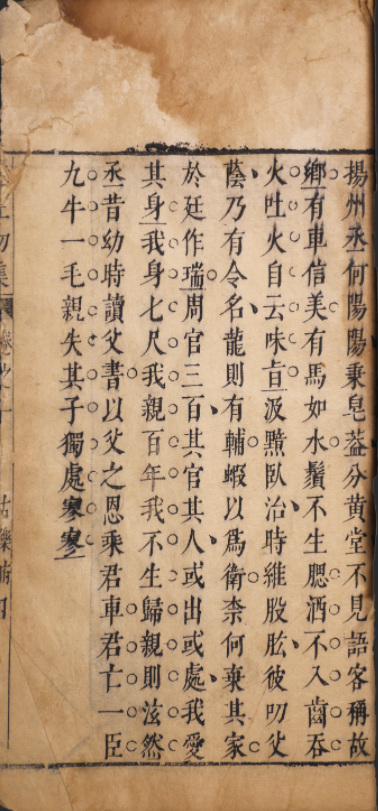 揚州丞何陽陽乘皂葢分黄堂不見語客稱故
鄉有車信美有馬如水鬚不生腮酒不入齒吞
火吐火自云味旨汲黯臥治時維股肱彼叨父
蔭乃有令名龍則有輔蝦以爲衛柰何棄其家
於廷作瑞周官三百其官其人或出或處我愛
其身我身七尺我親百年我不生歸親則泫然
丞昔幼時讀父書以父之恩乘君車君亡一臣
九牛一毛親失其子獨處寥寥